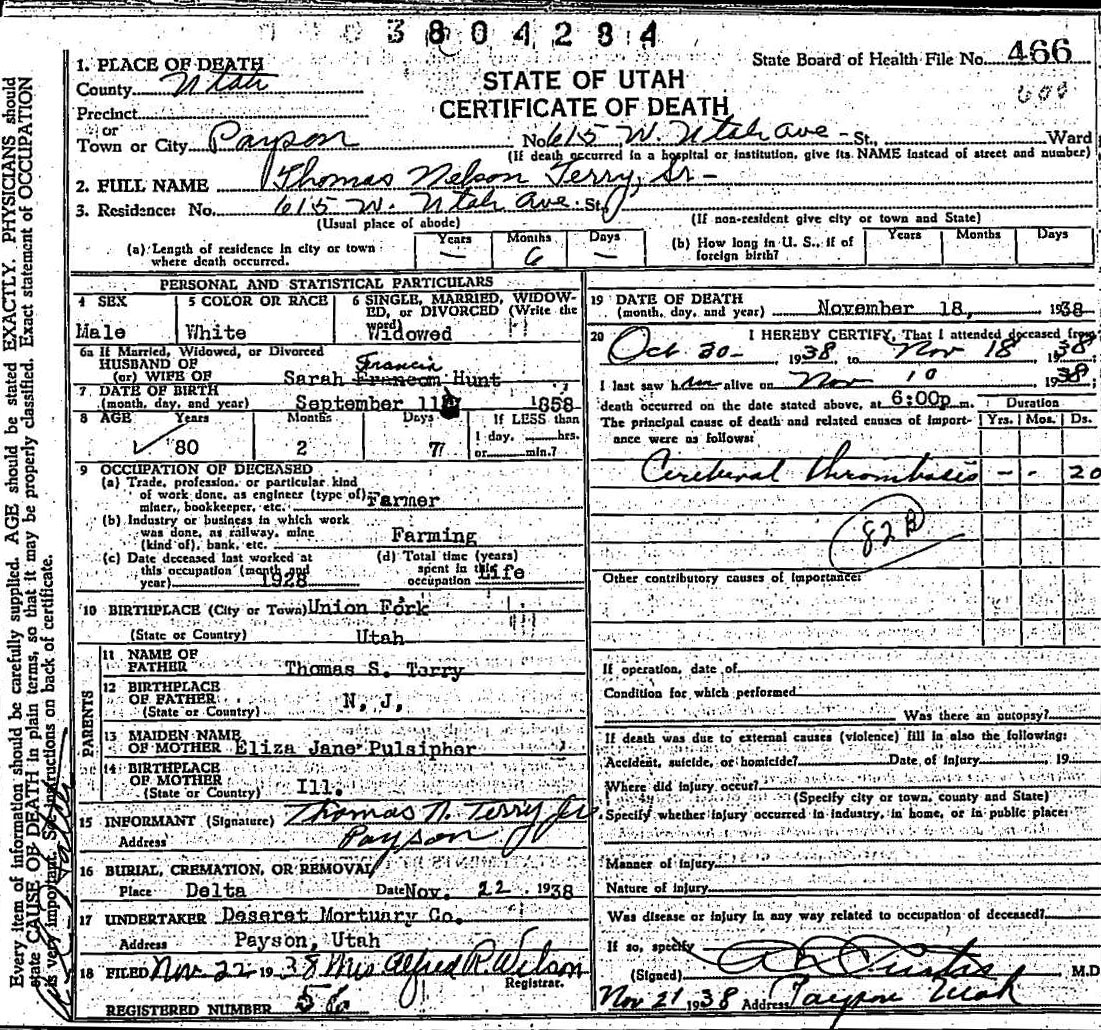 3804284
State Board of Health File No. 466
600
STATE OF UTAH
CERTIFICATE OF DEATH
1. PLACE OF DEATH
County Utah
Precinct
or
Town or City Payson No. 615 W. Utah Ave - St., Ward
(If death occurred in a hospital or institution, give its NAME instead of street and number)
2. FULL NAME Thomas Nelson Terry, Sr -
3. Residence: No. 615 W. Utah Ave. St.
(Usual place of abode) (If non-resident give city or town and State)
(a) Length of residence in city or town where death occurred. Years — Months 6 Days —
(b) How long in U. S., if of foreign birth? Years Months Days
PERSONAL AND STATISTICAL PARTICULARS
4 SEX
Male
5 COLOR OR RACE
White
6 SINGLE, MARRIED, WIDOW-
ED, or DIVORCED (Write the
word)
Widowed
6a If Married, Widowed, or Divorced
HUSBAND OF
(or) WIFE OF Sarah Francom Hunt
Francis
7 DATE OF BIRTH
(month, day, and year) September 11 1858
8 AGE Years Months Days If LESS than
80 2 7 1 day, hrs.
or min.?
9 OCCUPATION OF DECEASED
(a) Trade, profession, or particular kind
of work done, as engineer (type of)
miner, bookkeeper, etc. Farmer
(b) Industry or business in which work
was done, as railway, mine
(kind of), bank, etc. Farming
(c) Date deceased last worked at
this occupation (month and
year) 1928
(d) Total time (years)
spent in this
occupation Life
10 BIRTHPLACE (City or Town) Union Fork
(State or Country) Utah
PARENTS
11 NAME OF
FATHER Thomas S. Terry
12 BIRTHPLACE
OF FATHER N. J.
(State or Country)
13 MAIDEN NAME
OF MOTHER Eliza Jane Pulsipher
14 BIRTHPLACE
OF MOTHER
(State or Country) Ill.
15 INFORMANT (Signature) Thomas N. Terry Jr
Address Payson
16 BURIAL, CREMATION, OR REMOVAL
Place Delta Date Nov. 22, 1938
17 UNDERTAKER Deseret Mortuary Co.
Address Payson, Utah
18 FILED Nov 22 1938 Mrs Alfred P. Wilson
Registrar.
REGISTERED NUMBER
19 DATE OF DEATH
(month, day, and year) November 18, 1938
20 I HEREBY CERTIFY, That I attended deceased from
Oct 30- 1938, to Nov 18 1938;
I last saw him alive on Nov 10 1938;
death occurred on the date stated above, at 6:00p m. Duration
The principal cause of death and related causes of import-
ance were as follows: Yrs. Mos. Ds.
Cerebral thrombosis - - 20
82 B
Other contributory causes of importance:
If operation, date of
Condition for which performed
Was there an autopsy?
If death was due to external causes (violence) fill in also the following:
Accident, suicide, or homicide? Date of injury 19
Where did injury occur?
(Specify city or town, county and State)
Specify whether injury occurred in industry, in home, or in public place:
Manner of injury
Nature of injury
Was disease or injury in any way related to occupation of deceased?
If so, specify
(Signed) Curtis M.D
Nov 21 1938 Address Payson Utah
Every item of information should be carefully supplied. AGE should be stated EXACTLY. PHYSICIANS should
state CAUSE OF DEATH in plain terms, so that it may be properly classified. Exact statement of OCCUPATION
is very important. See instructions on back of certificate.